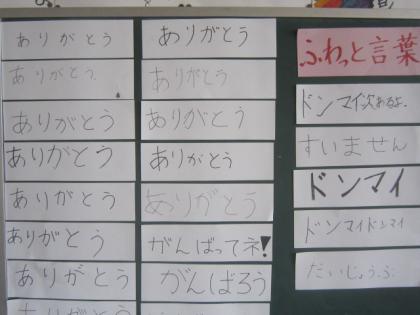 ありがとう
ありがとう
ありがとう
ありがとう
ありがとう
ありがとう
ありがとう
ありがとう
ありがとう
ありがとう
ありがとう
ありがとう
ありがとう
がんばってネ!
がんばろう
ふわっと言葉
ドンマイ次あるよ。
すいません
ドンマイ
ドンマイドンマイ
だいじょうぶ